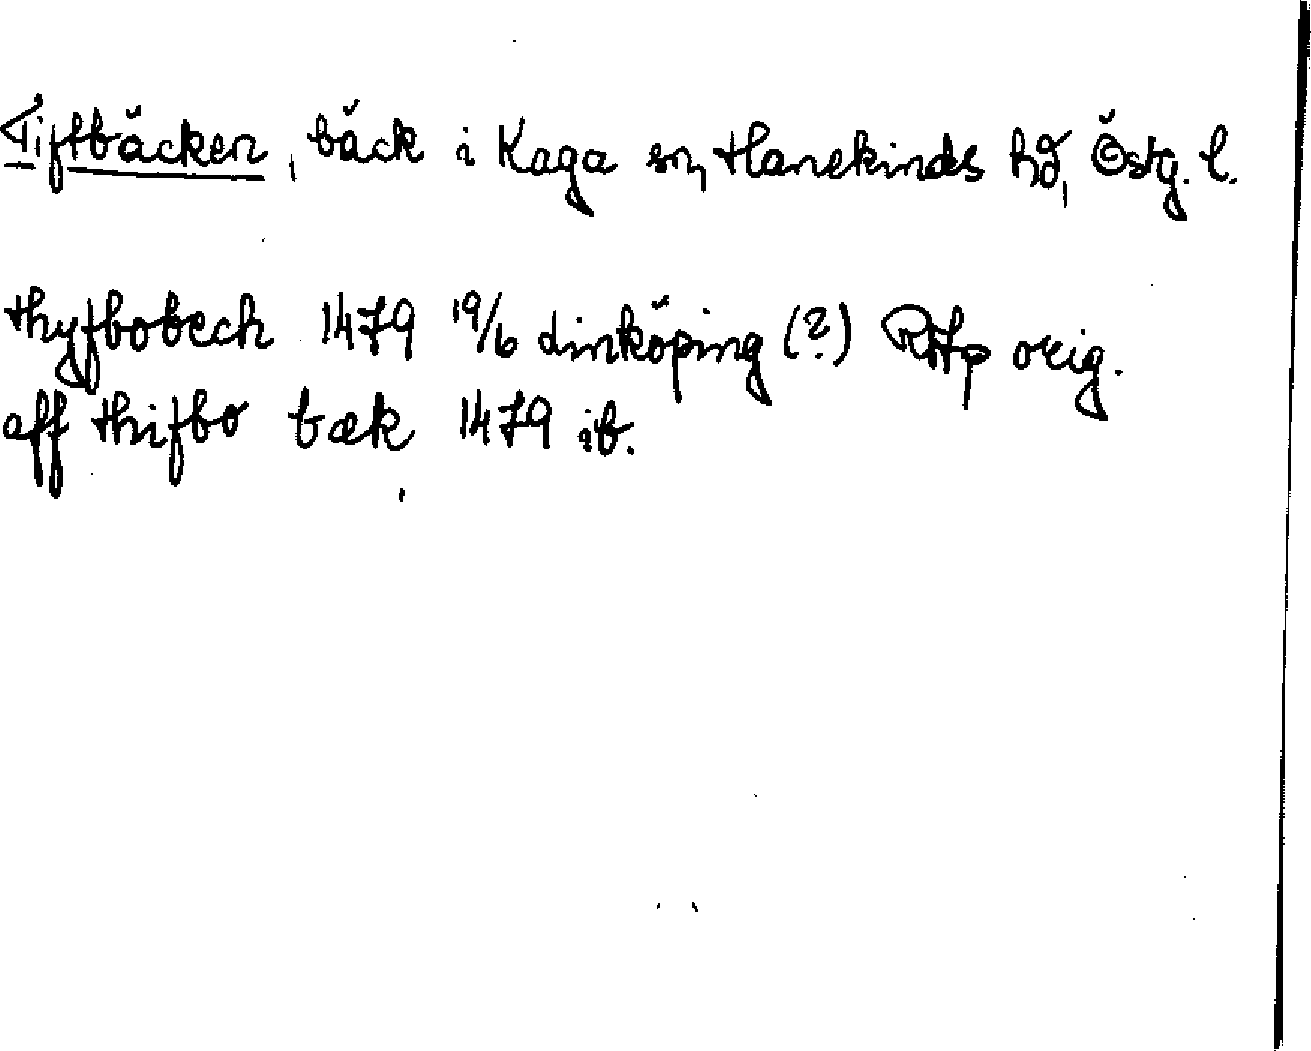 Tiftbäcken, bäck i Kaga sn, Hanekinds hd, Östg. l.
thyfbobech 1479 19/6 Linköping (?) RHp orig.
aff thifbo bæk 1479 ib.